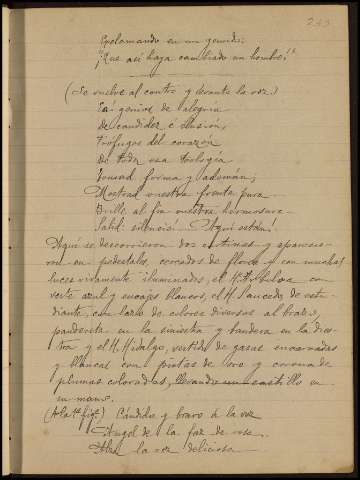 243
Exclamando en un gemido:
"¡Que así haya cambiado un hombre!"
(Se vuelve al centro y levanta la voz.)
Ea! genios de alegría
De candidez é ilusión,
Prófugos del corazón
De toda esa teología
Tomad forma y ademán;
Mostrad vuestra frente pura
Brille al fin vuestra hermosura
Salid: silencio! Aquí están.
Aquí se descorrieron dos cortinas y aparecie-
ron en pedestales, cercados de flores y con muchas
luces vivamente iluminados, el H. con
veste azul y encajes blancos, el H. Saucedo de estu-
diante, con lazo de colores diversos al brazo,
pandereta en la siniestra y bandera en la dies-
tra y el H. Hidalgo, vestido de gasas encarnadas
y blancas con pintas de oro y corona de
plumas coloradas, llevando un castillo en
su mano.
(A la 1ª fig.) Cándido y bravo á la vez
Angel de la faz de rosa
Alza la voz deliciosa